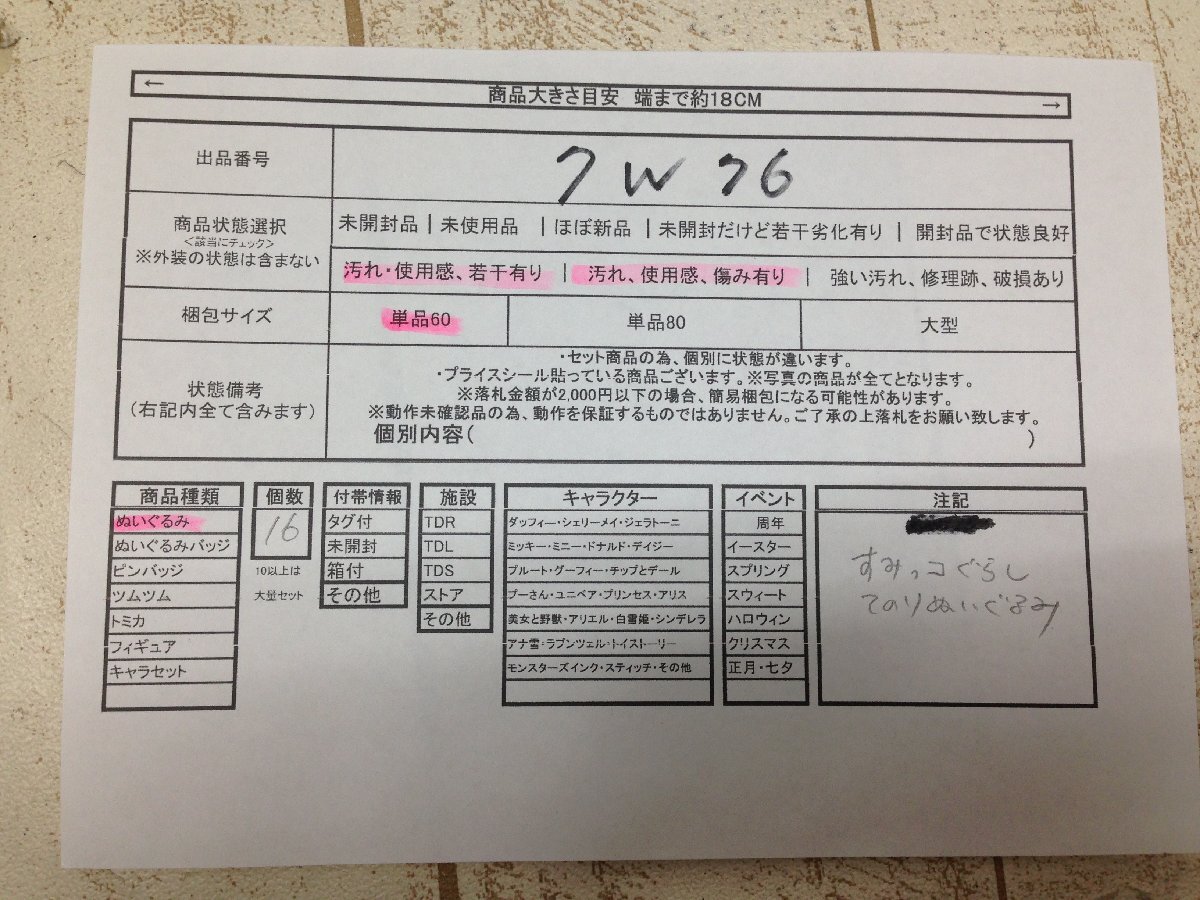 ← 商品大きさ目安 端まで約18CM →
出品番号 7W76
商品状態選択
<該当にチェック>
※外装の状態は含まない
未開封品 | 未使用品 | ほぼ新品 | 未開封だけど若干劣化有り | 開封品で状態良好
汚れ・使用感、若干有り | 汚れ、使用感、傷み有り | 強い汚れ、修理跡、破損あり
梱包サイズ 単品60 単品80 大型
状態備考
(右記内全て含みます)
・セット商品の為、個別に状態が違います。
・プライスシール貼っている商品ございます。※写真の商品が全てとなります。
※落札金額が2,000円以下の場合、簡易梱包になる可能性があります。
※動作未確認品の為、動作を保証するものではありません。ご了承の上落札をお願い致します。
個別内容( )
商品種類
ぬいぐるみ
ぬいぐるみバッジ
ピンバッジ
ツムツム
トミカ
フィギュア
キャラセット
個数
16
10以上は
大量セット
付帯情報
タグ付
未開封
箱付
その他
施設
TDR
TDL
TDS
ストア
その他
キャラクター
ダッフィー・シェリーメイ・ジェラトーニ
ミッキー・ミニー・ドナルド・デイジー
プルート・グーフィー・チップとデール
プーさん・ユニベア・プリンセス・アリス
美女と野獣・アリエル・白雪姫・シンデレラ
アナ雪・ラプンツェル・トイストーリー
モンスターズインク・スティッチ・その他
イベント
周年
イースター
スプリング
スウィート
ハロウィン
クリスマス
正月・七夕
注記
すみっコぐらし
てのりぬいぐるみ